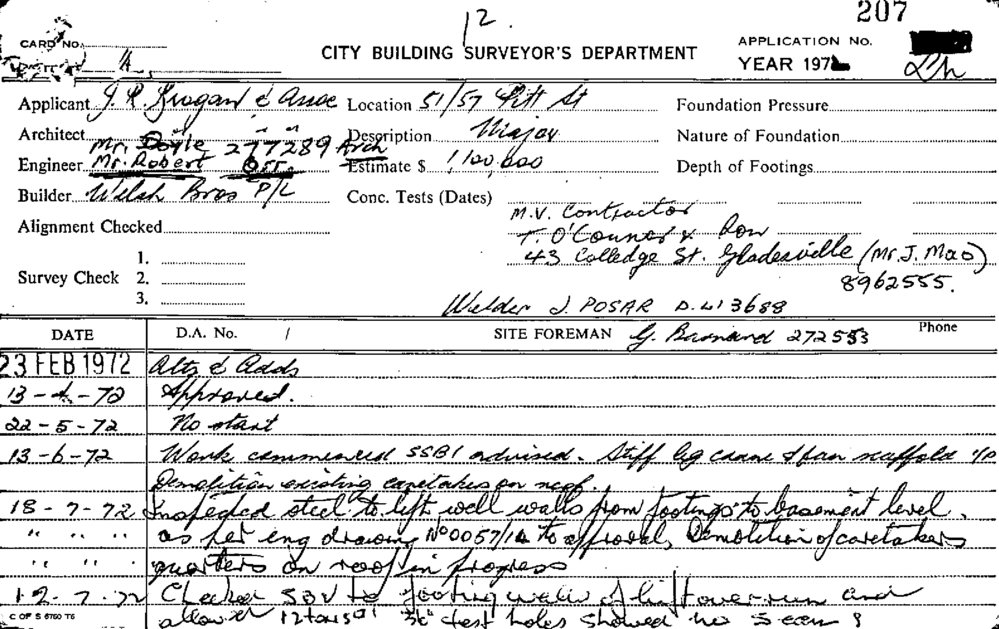 207
12
CARD No.
CITY BUILDING SURVEYOR'S DEPARTMENT
APPLICATION No.
YEAR 197
Applicant J. R. & Assoc Location 51/57 Pitt St Foundation Pressure
Architect Mr. Doyle 277289 Arch Description Major Nature of Foundation
Engineer Mr. Robert Orr Estimate $ 1,100,000 Depth of Footings
Builder Welsh Bros P/L Conc. Tests (Dates)
M.V. Contractor
Alignment Checked T. O'Connor & Don
1. 43 Colledge St. Gladesville (Mr. J. Mao)
Survey Check 2. 8962555.
3.
Welder J. POSAR D.L13688
DATE D.A. No. / SITE FOREMAN G. 272553 Phone
23 FEB 1972 Alts & Adds
13-4-72 Approved.
22-5-72 No start
13-6-72 Work commenced SSBI advised. Stiff leg crane & fan scaffold up
Demolition existing caretakers on roof.
18-7-72 Inspected steel to lift well walls from footings to basement level,
" " " as per eng drawing No 0057/14 to approval, Demolition of caretakers
" " " quarters on roof in progress
19-7-72 to footing walls of lift overrun and
C OF S 6760 T6 test holes showed no